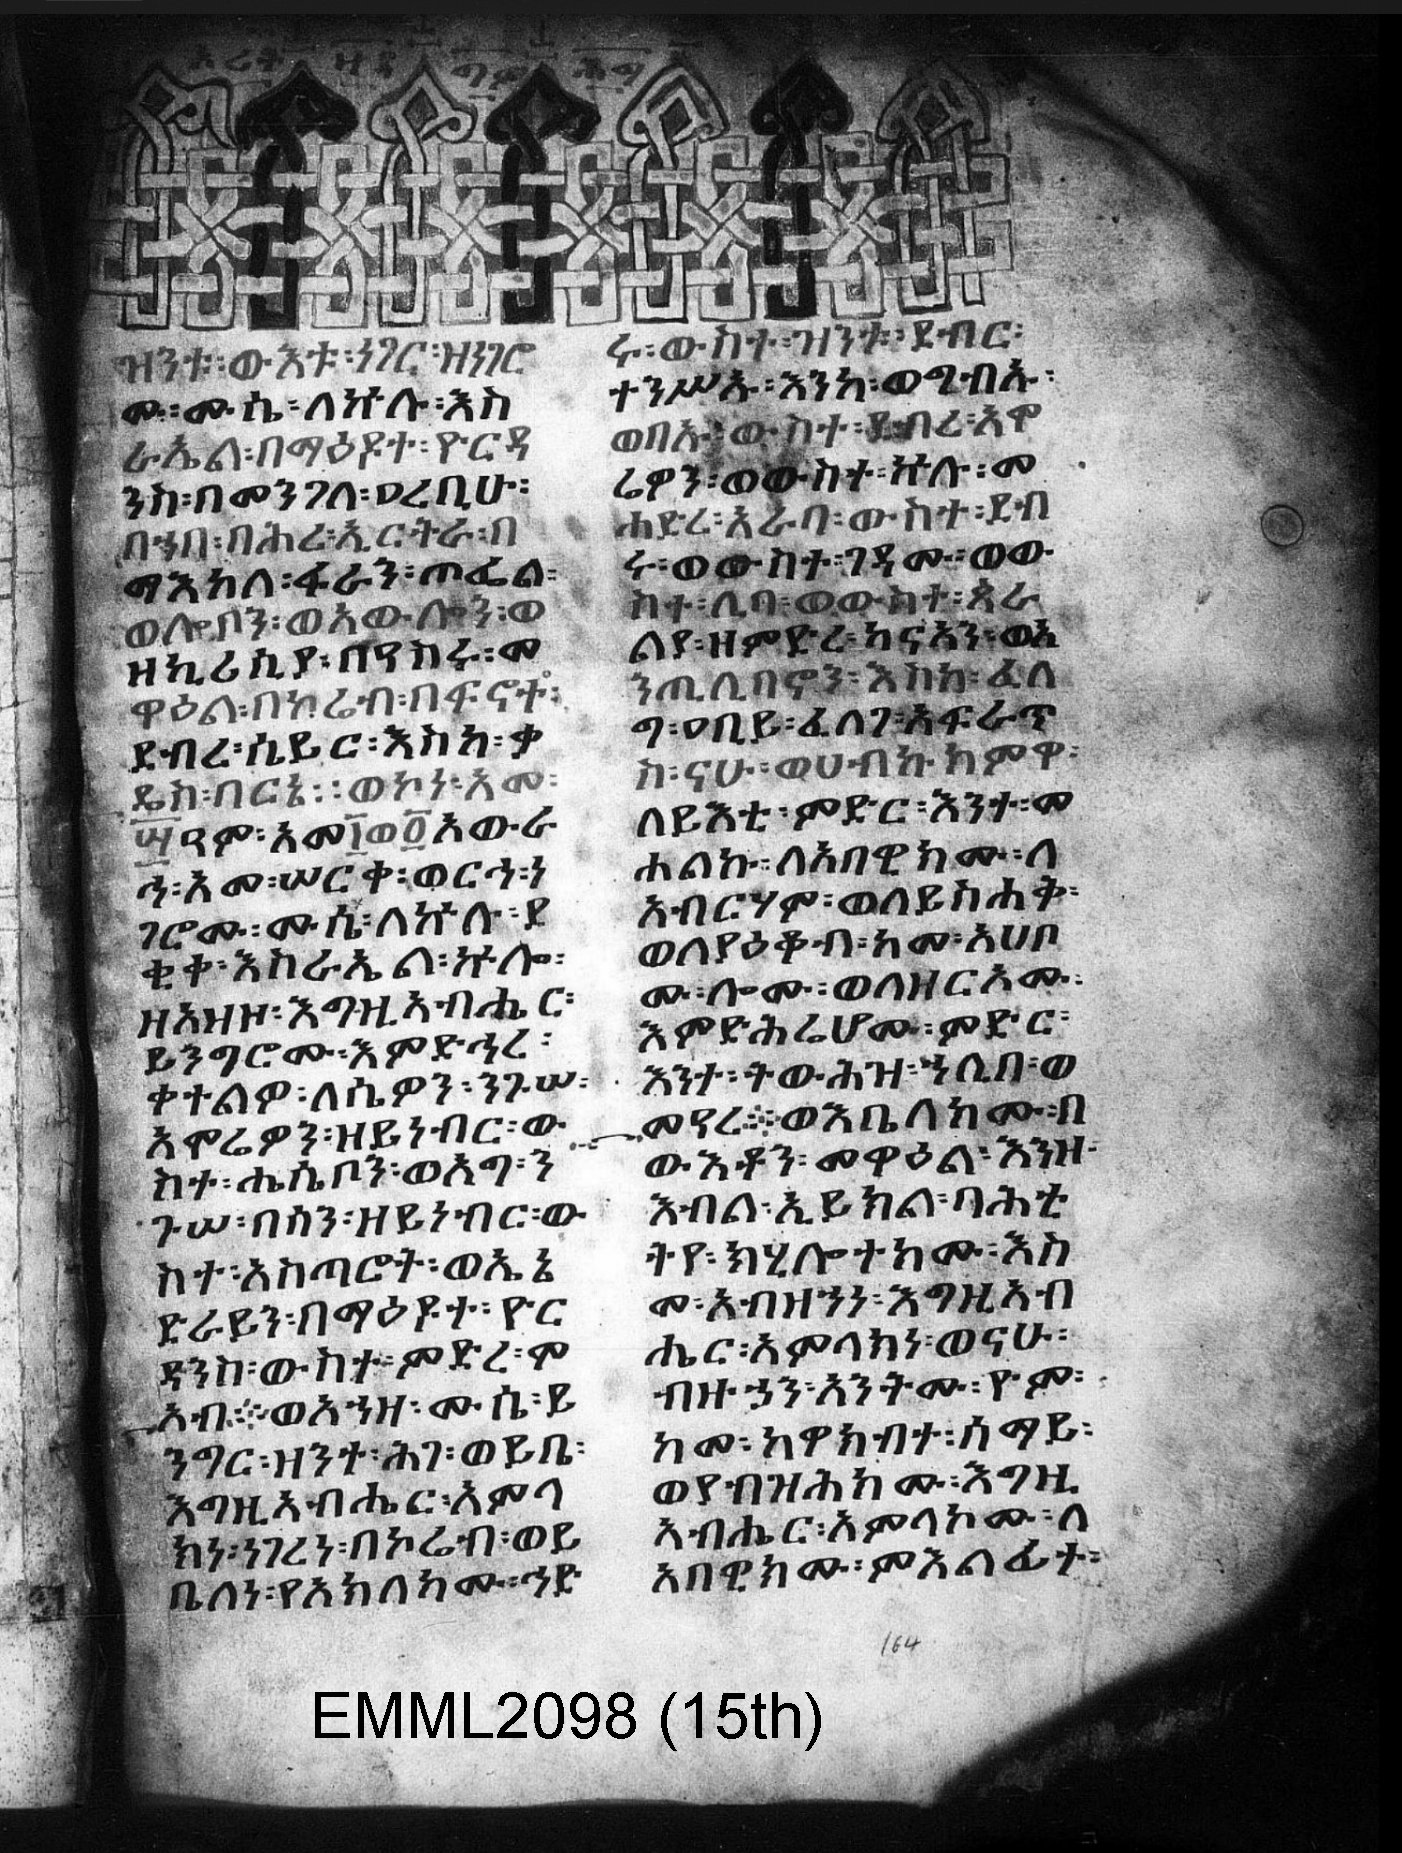 ኦሪት ዘዳ ግም ሕግ
ዝንቱ፡ውእቱ፡ነገር፡ዝነገሮ
ሙ፡ሙሴ፡ለኵሉ፡እስ
ራኤል፡በማዕዶተ፡ዮርዳ
ንስ፡በመንገለ፡ዐረቢሁ፡
በኀበ፡በሕረ፡ኢርትራ፡በ
ማእከለ፡ፋራን፡ጦፌል፡
ወሎቦን፡ወአውሎን፡ወ
ዘኪሪሲያ፡በዓስሩ፡መ
ዋዕል፡በኮሬብ፡በፍኖተ፡
ደብረ፡ሴይር፡እስከ፡ቃ
ዴስ፡በርኔ፡፡ወኮነ፡አመ፡
፵ዓም፡አመ፲ወ፩አውራ
ኅ፡አመ፡ሠርቀ፡ወርኅ፡ነ
ገሮሙ፡ሙሴ፡ለኵሉ፡ደ
ቂቀ፡እስራኤል፡ኵሎ፡
ዘአዝዞ፡እግዚአብሔር፡
ይንግሮሙ፡እምድኅረ፡
ቀተልዎ፡ለሴዎን፡ንጉሠ፡
አሞሬዎን፡ዘይነብር፡ው
ስተ፡ሐሴቦን፡ወአግ፡ን
ጉሠ፡በሰን፡ዘይነብር፡ው
ስተ፡አስጣሮት፡ወኤኔ
ድራይን፡በማዕዶተ፡ዮር
ዳንስ፡ውስተ፡ምድረ፡ሞ
አብ፨ወአኀዘ፡ሙሴ፡ይ
ንግር፡ዘንተ፡ሕገ፡ወይቤ፡
እግዚአብሔር፡አምላ
ክነ፡ነገረነ፡በኮሬብ፡ወይ
ቤለነ፡የአክለክሙ፡ኀድ
ሩ፡ውስተ፡ዝንቱ፡ደብር፡
ተንሥኡ፡እንከ፡ወግብኡ፡
ወበኡ፡ውስተ፡ደብረ፡አሞ
ሬዎን፡ወውስተ፡ኵሉ፡መ
ሐድረ፡አራባ፡ውስተ፡ደብ
ሩ፡ወውስተ፡ገዳሙ፡ወው
ስተ፡ሊባ፡ወውስተ፡ጳራ
ልያ፡ዘምድረ፡ከናአን፡ወአ
ንጢሊባኖን፡እስከ፡ፈለ
ግ፡ዐቢይ፡ፈለገ፡አፍራጥ
ስ፡ናሁ፡ወሀብኩክምዋ፡
ለይእቲ፡ምድር፡እንተ፡መ
ሐልኩ፡ለአበዊክሙ፡ለ
አብርሃም፡ወለይስሐቅ፡
ወለያዕቆብ፡ከመ፡አሀቦ
ሙ፡ሎሙ፡ወለዘርአሙ፡
እምድሕሬሆሙ፡ምድር፡
እንተ፡ትውሕዝ፡ኀሊበ፡ወ
መዓረ፨ወእቤለክሙ፡በ
ውእቶን፡መዋዕል፡እንዘ፡
እብል፡ኢይክል፡ባሕቲ
ትየ፡ክሂሎተክሙ፡እስ
መ፡አብዘኀነ፡እግዚአብ
ሔር፡አምላክነ፡ወናሁ፡
ብዙኃን፡አንትሙ፡ዮም፡
ከመ፡ከዋክብተ፡ሰማይ፡
ወያብዝሕክሙ፡እግዚ
አብሔር፡አምላኮሙ፡ለ
አበዊክሙ፡ምእልፊተ፡
164
EMML2098 (15th)